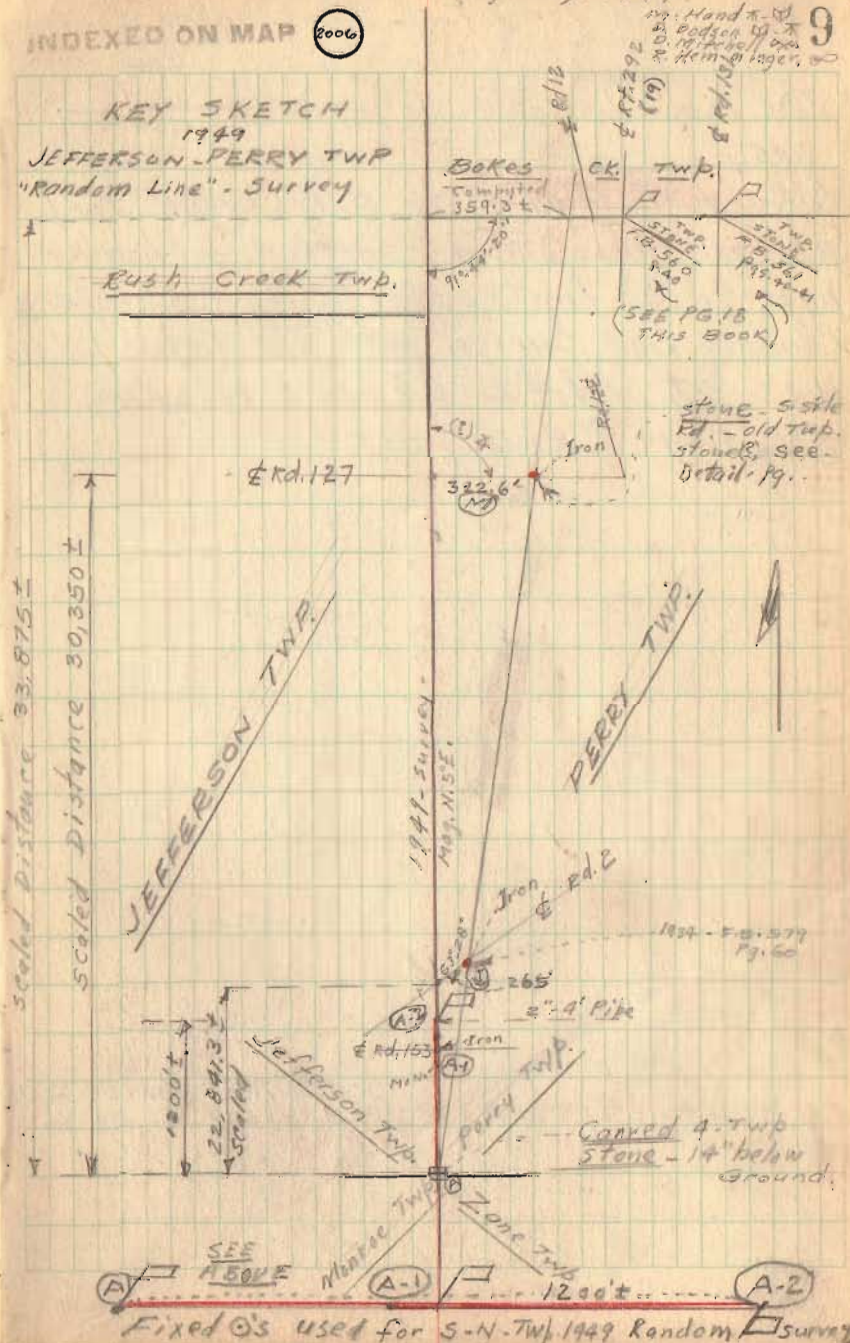 INDEXED ON MAP
2006
9
Hand
Dodson
Mitchell
KEY SKETCH
1949
JEFFERSON-PERRY TWP
"Random Line" - Survey
¢ Rd 12
¢ Rt. 292
(19)
¢ Rd. 136
Bokes CK. Twp.
Computed
359.3 ±
TWP.
STONE
F.B. 560
P. 40
TWP.
STONE
F.B. 561
Pgs. 40-41
(SEE PG. 18
THIS BOOK)
Rush Creek Twp.
stone - S. side
Rd. - old Twp.
stone, see
Detail - Pg..
Iron
¢ Rd. 127
322.6'
(M)
Scaled Distance 33,875 ±
Scaled Distance 30,350 ±
JEFFERSON TWP.
PERRY TWP.
1949 - Survey -
Mag. N. 5° E.
Iron
¢ Rd. 2
1934 - F.B. 579
Pg. 60
265'
A-2
2" - 4' Pipe
¢ Rd. 153
Iron
A-1
Mon.
1200' ±
22,841.3 ±
Scaled
Jefferson Twp.
Perry Twp.
Carved 4-Twp
Stone - 14" below
Ground.
Monroe Twp.
Zane Twp
SEE
ABOVE
A
A-1
1200' ±
A-2
Fixed ⊙'s used for S-N-Twp. 1949 Random survey